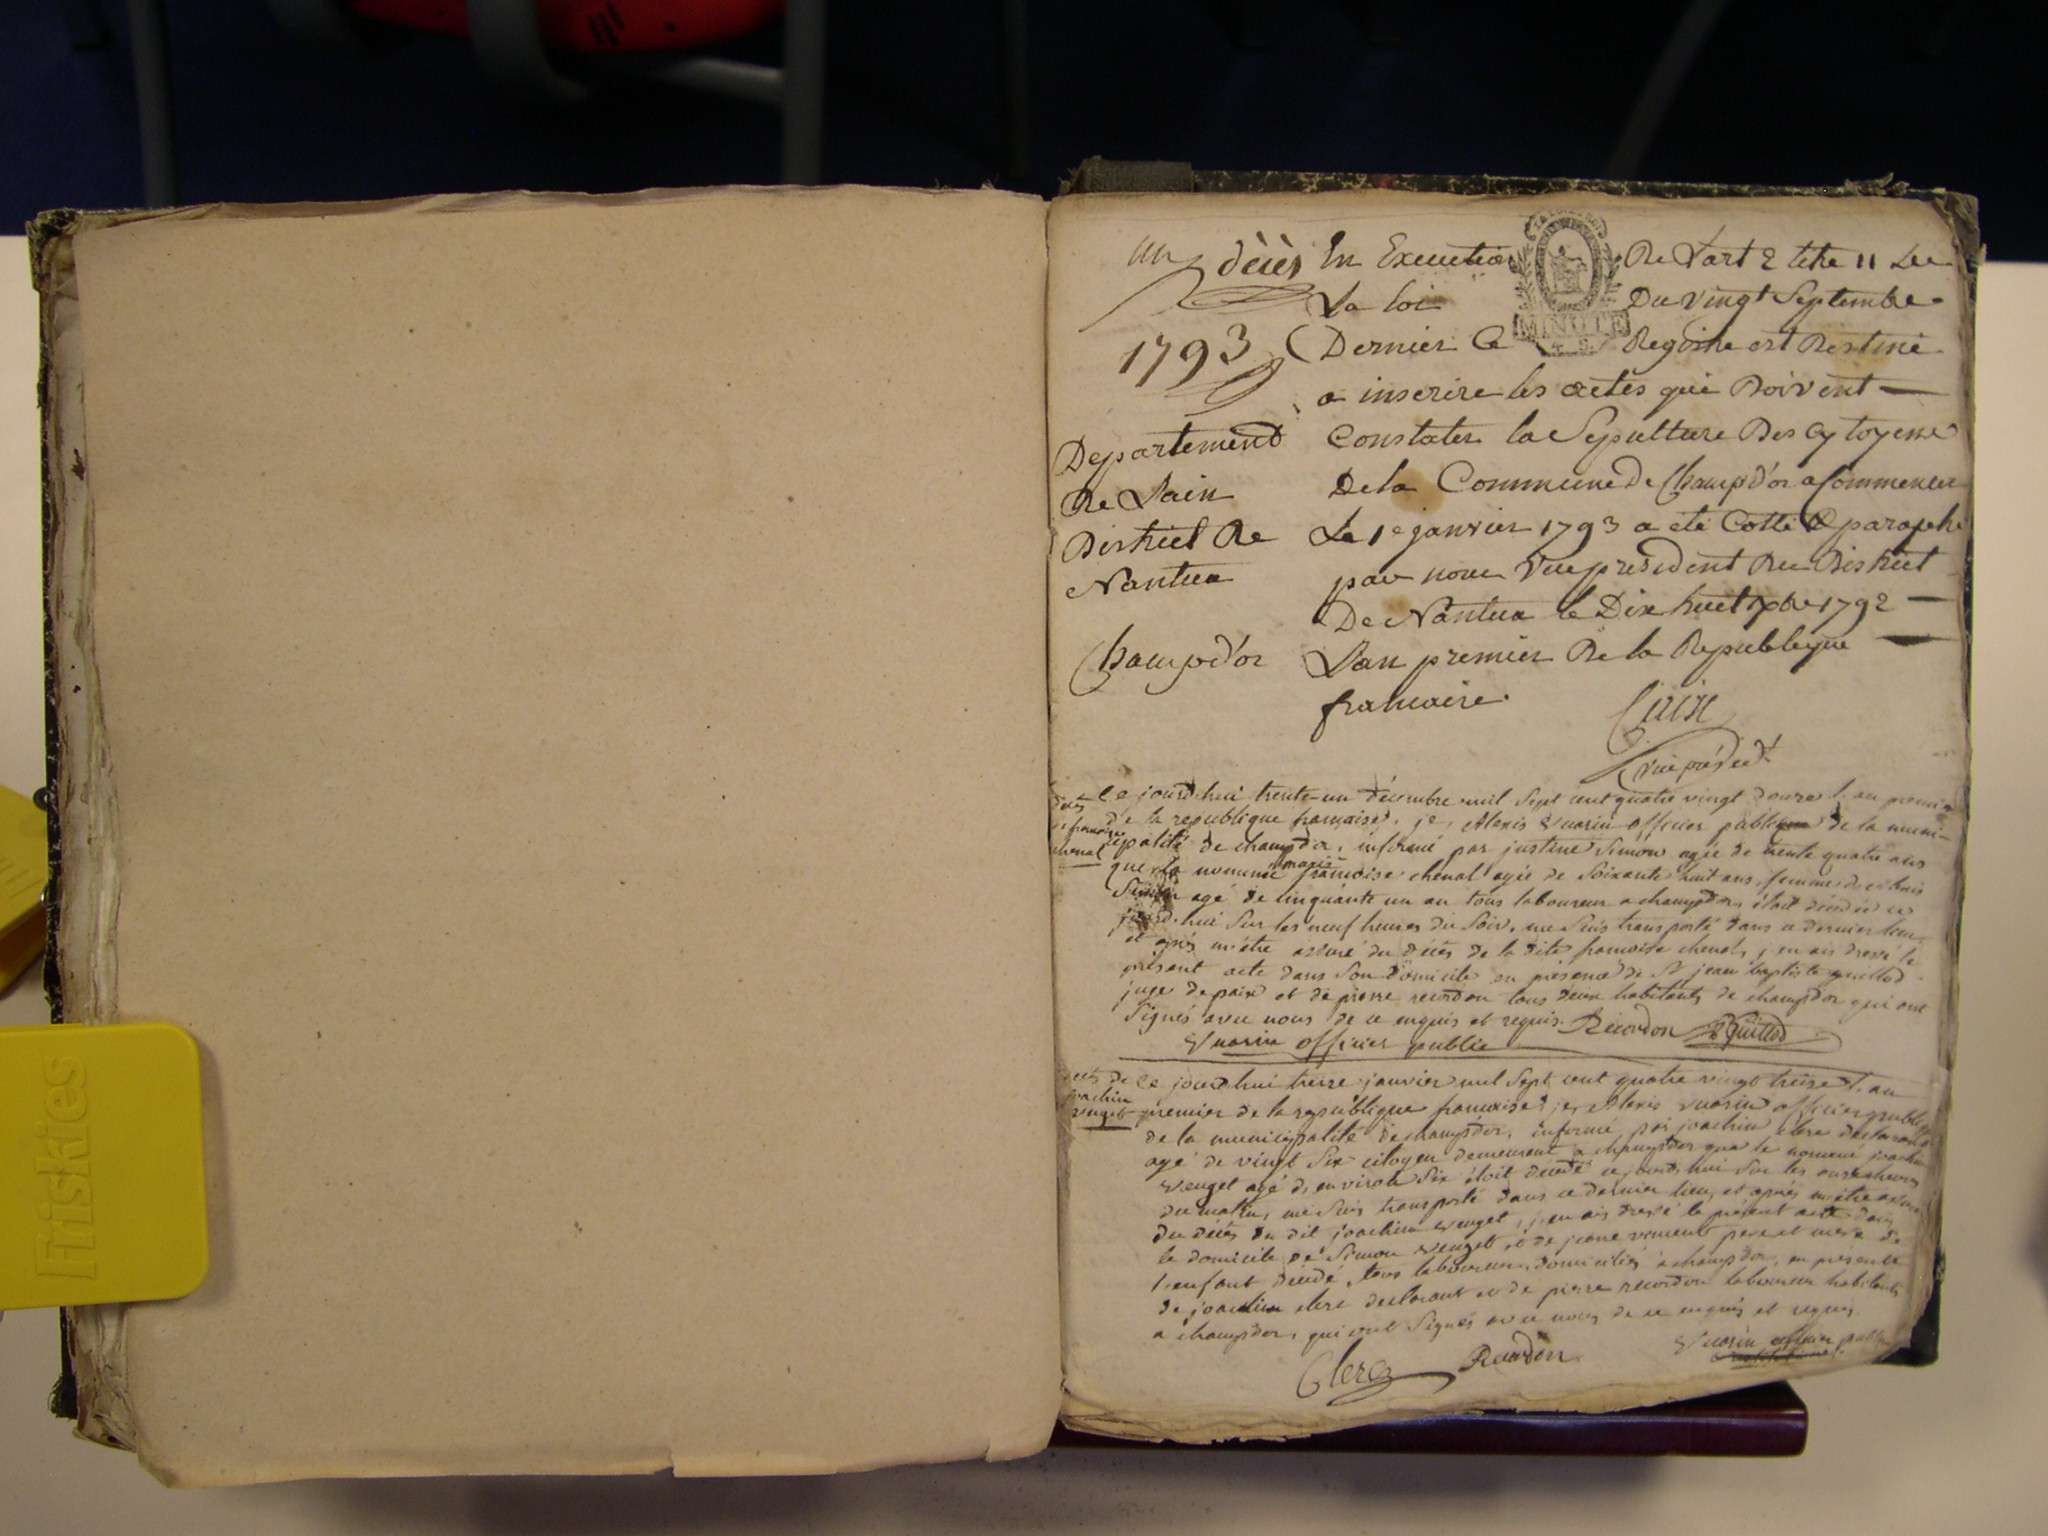 Friskies
un
décès
1793
Departement
De Lain
District De
Nantua
Champd'or
MINUTE
En Execution De Lart 2 titre 11 De
La loi Du vingt Septembre
Dernier Ce Regitre est Destiné
a inscrire les actes qui Doivent
Constater la Sepulture Des Cytoyens
De la Commune de Champd'or a Commencer
Le 1e janvier 1793 a été Cotté & paraphé
par nous Vice president Du District
De Nantua le Dix huit Xbre 1792
Lan premier De la Republique
francaise.
vice présidt
décès
de françoise
chenal
Ce jourd'hui trente-un décembre mil Sept cent quatre vingt douze l'an premier
de la republique française, je, Alexis Vuarin officier public de la muni-
cipalité de champdor, informé par justine Simon agée de trente quatre ans
que la nommée marie françoise chenal agée de Soixante huit ans, femme de
agé de cinquante un an tous laboureur a champdor, étoit décédée ce
jourd'hui Sur les neuf heures du Soir, me Suis transporté dans ce dernier lieu
et après m'être assuré du décès de la dite françoise chenal, j'en ais dressé le
présent acte dans Son domicile en présence de St jean baptiste guillod
juge de paix et de pierre recordon tous deux habitants de champdor qui ont
Signés avec nous de ce enquis et requis. Recordon Guillod
Vuarin officier public
décès de
joachin
Venget
Ce jourd'hui treize janvier mil Sept cent quatre vingt treize l'an
premier de la republique française, je, Alexis Vuarin officier public
de la municipalité de champdor, informé par joachin clerc déclarant
agé de vingt Six citoyen demeurant a champdor que le nommé joachin
Venget agé d'environ Six étoit décédé ce jourd'hui Sur les onze heures
du matin, me Suis transporté dans ce dernier lieu, et après m'être assuré
du décès du dit joachin Venget, j'en ais dressé le présent acte dans
le domicile de Simon Venget et de jeane père et mère de
l'enfant décédé, tous laboureurs domiciliés a champdor, en présence
de joachin clerc declarant et de pierre recordon laboureur habitants
a champdor, qui ont Signés avec nous de ce enquis et requis.
Clerc Recordon Vuarin officier public